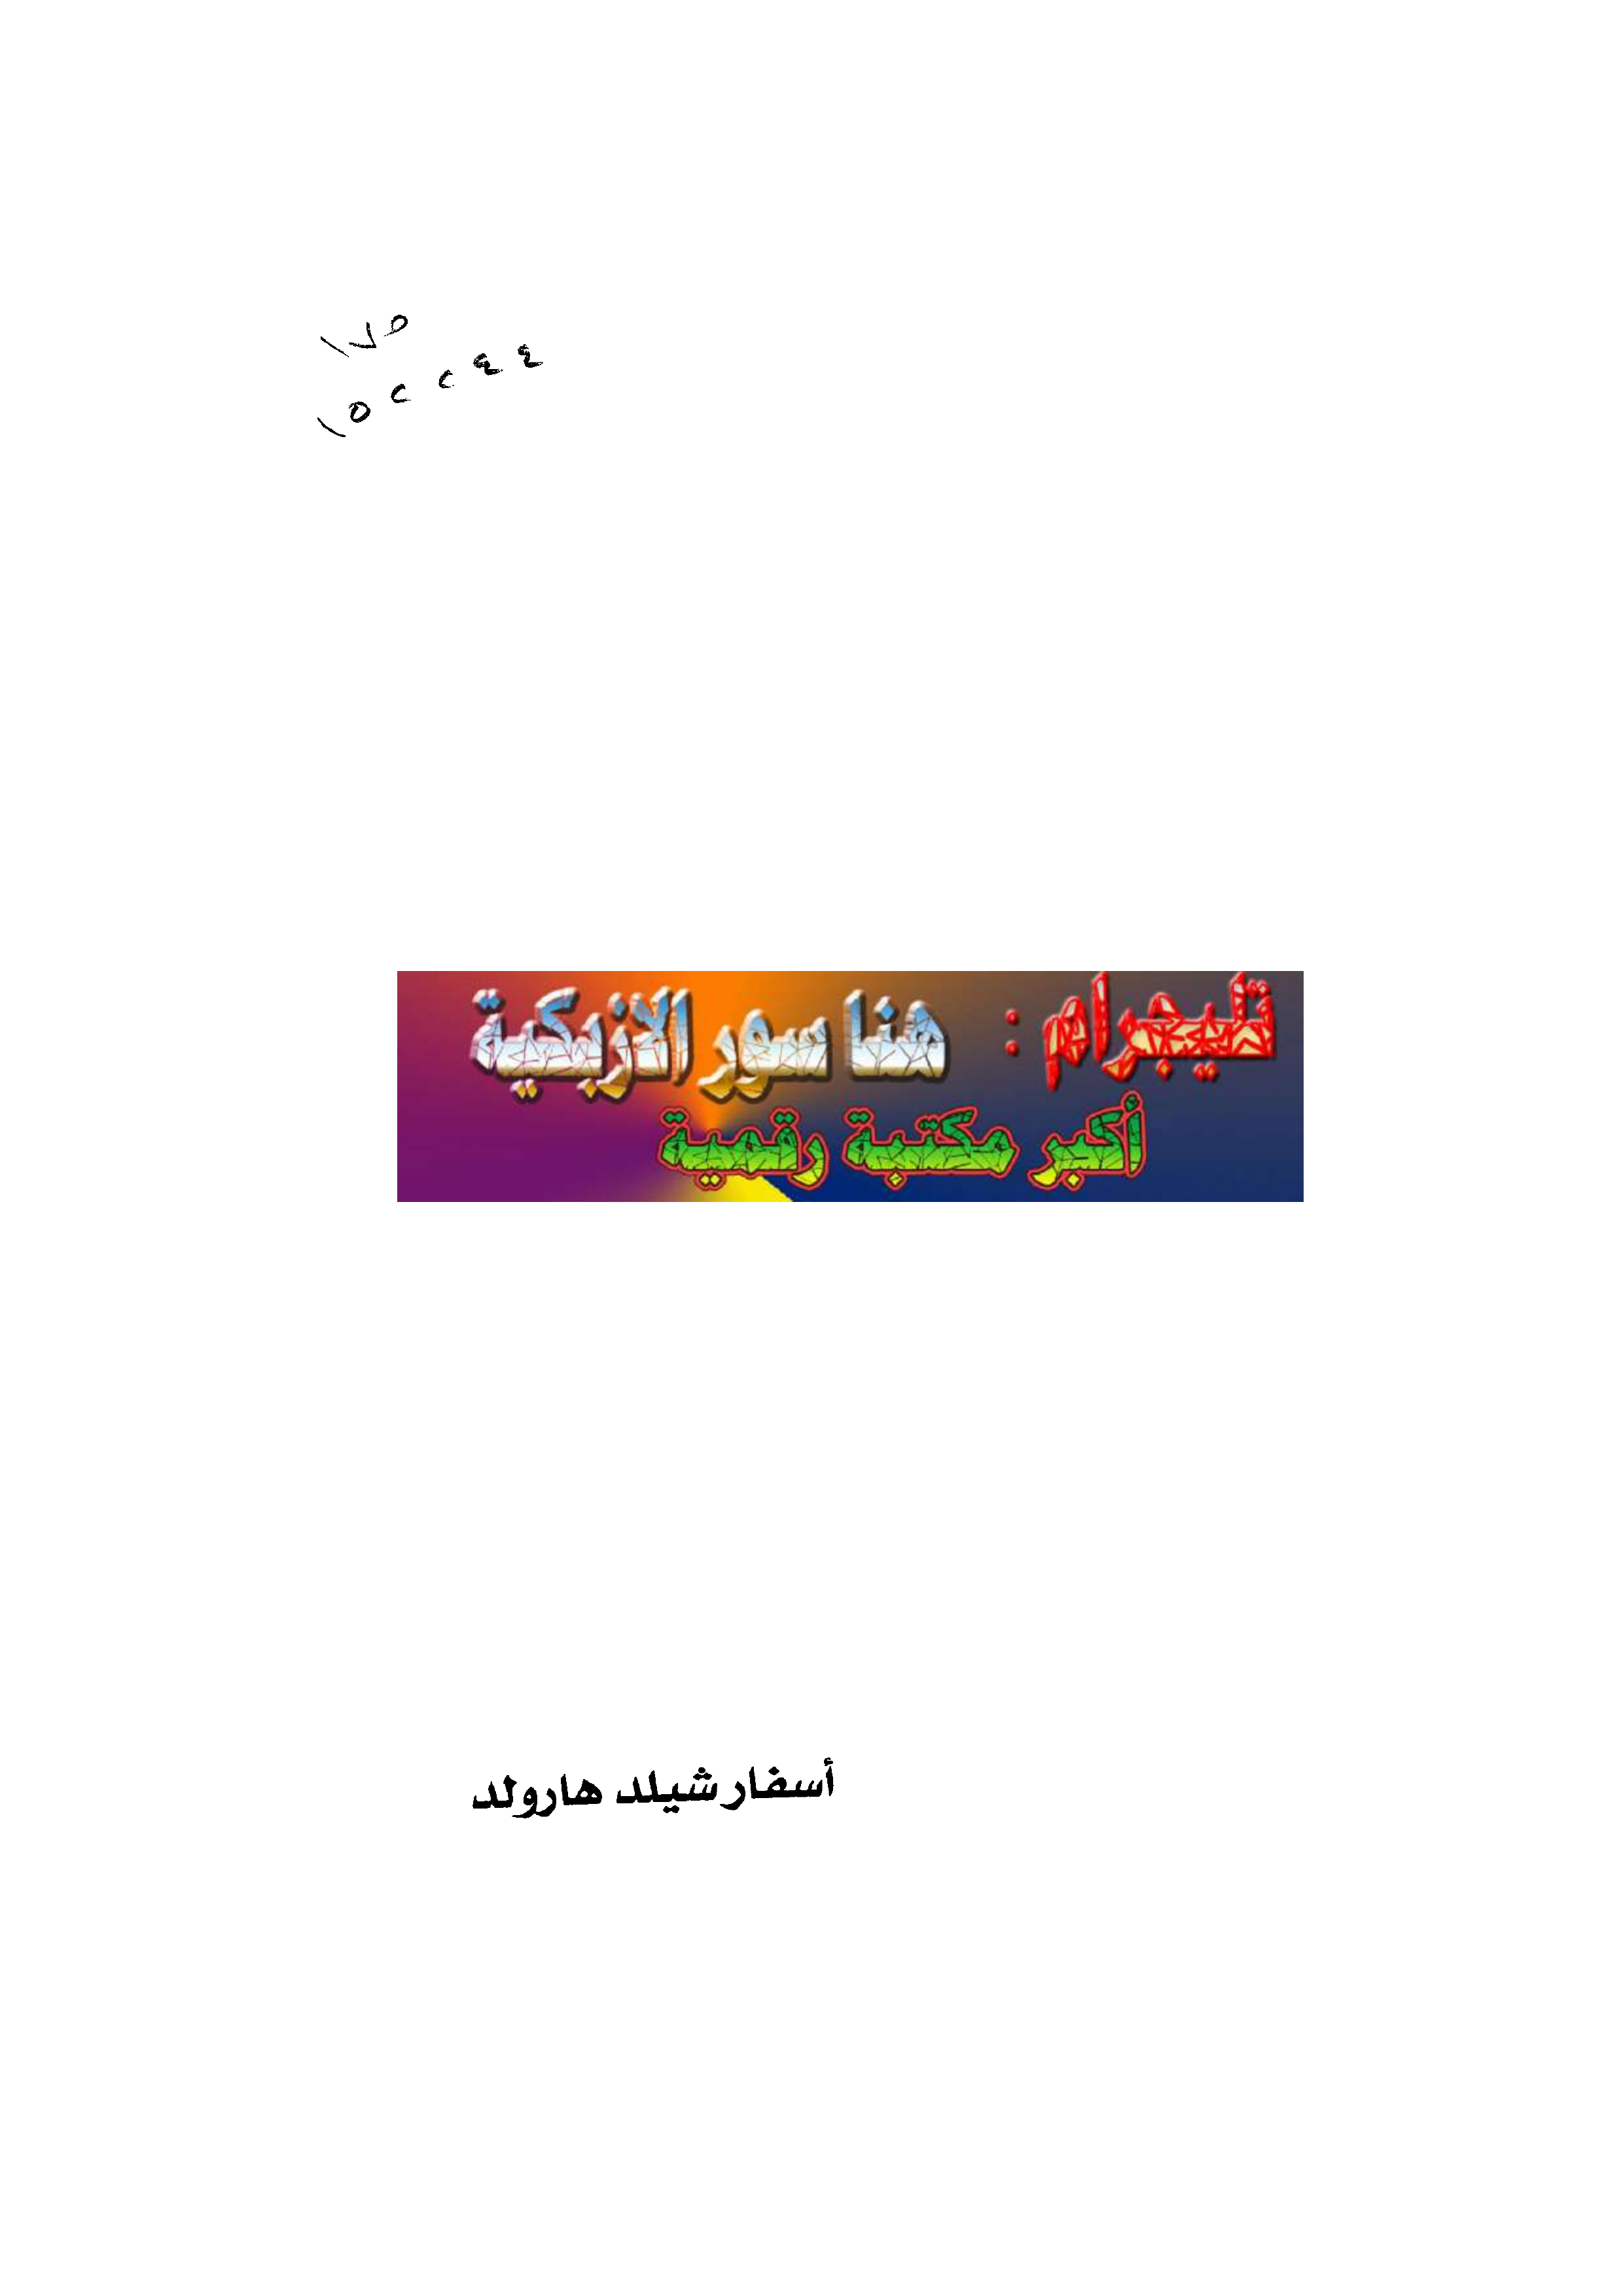 ١٧٥
١٥٢٢٤٤
تليجرام : هنا سور الازبكية
أكبر مكتبة رقمية
أسفار شيلد هارولد